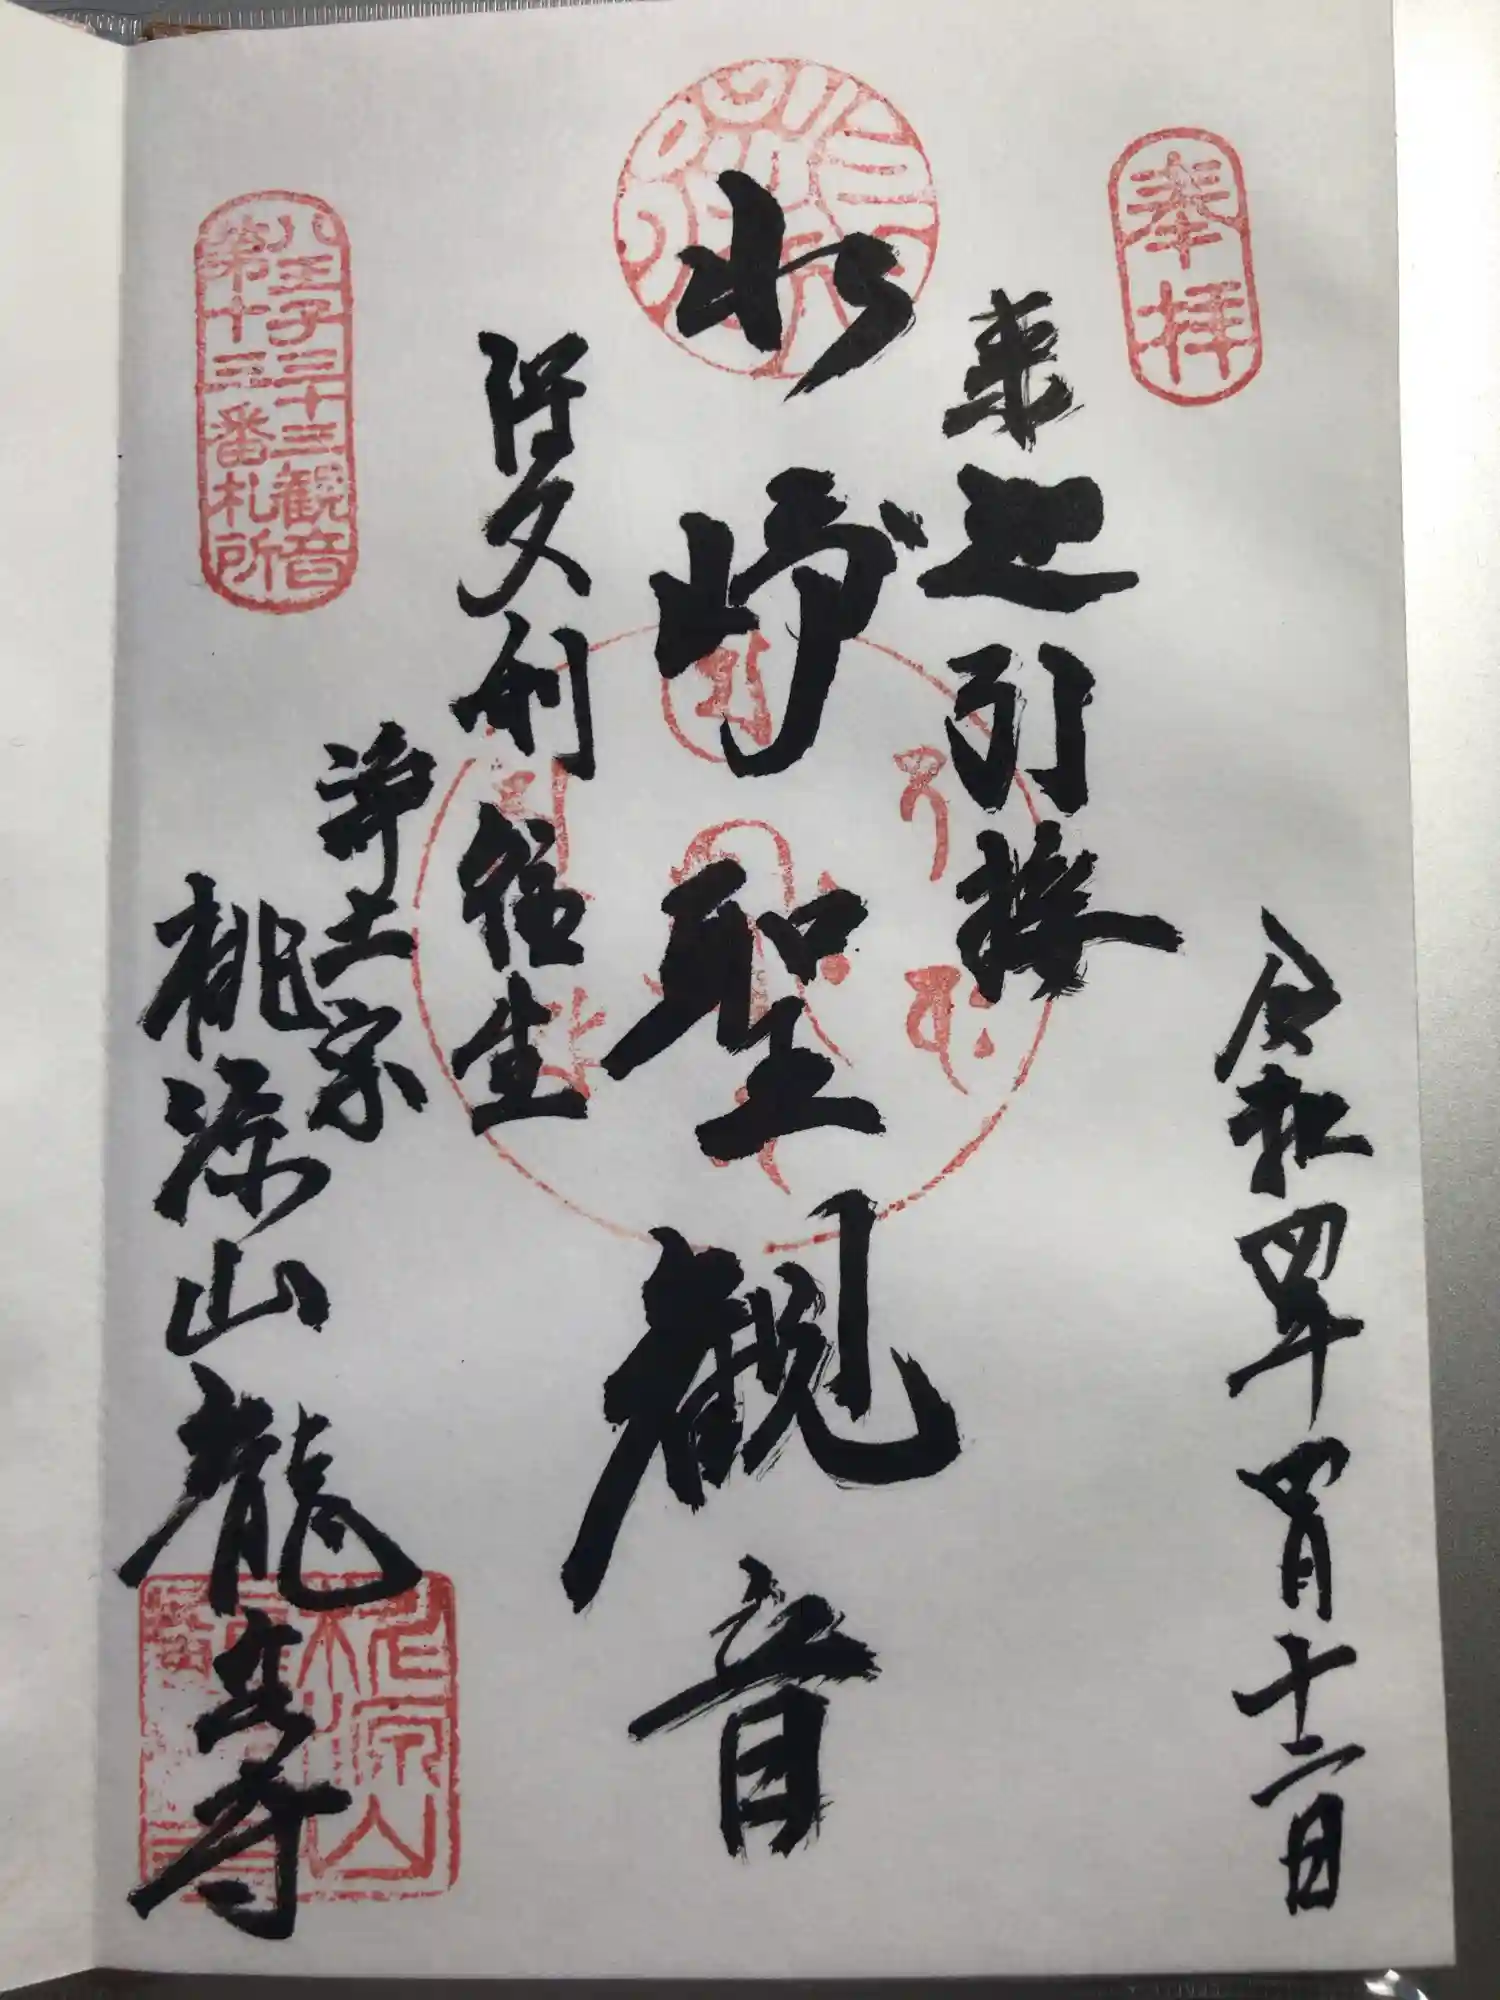 奉拝
令和四年四月十二日
来迎引接
水崎聖観音
得久利往生
浄土宗
桃源山龍泉寺
八王子三十三観音
第十三番札所
桃源山